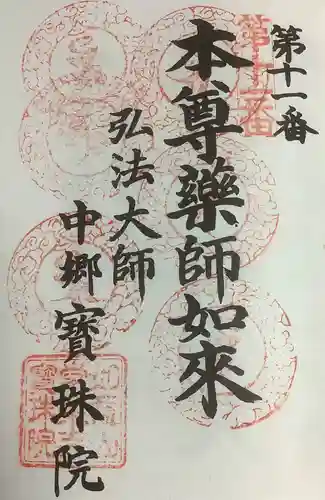 第十一番
本尊藥師如來
弘法大師
中郷寶珠院
第十一番